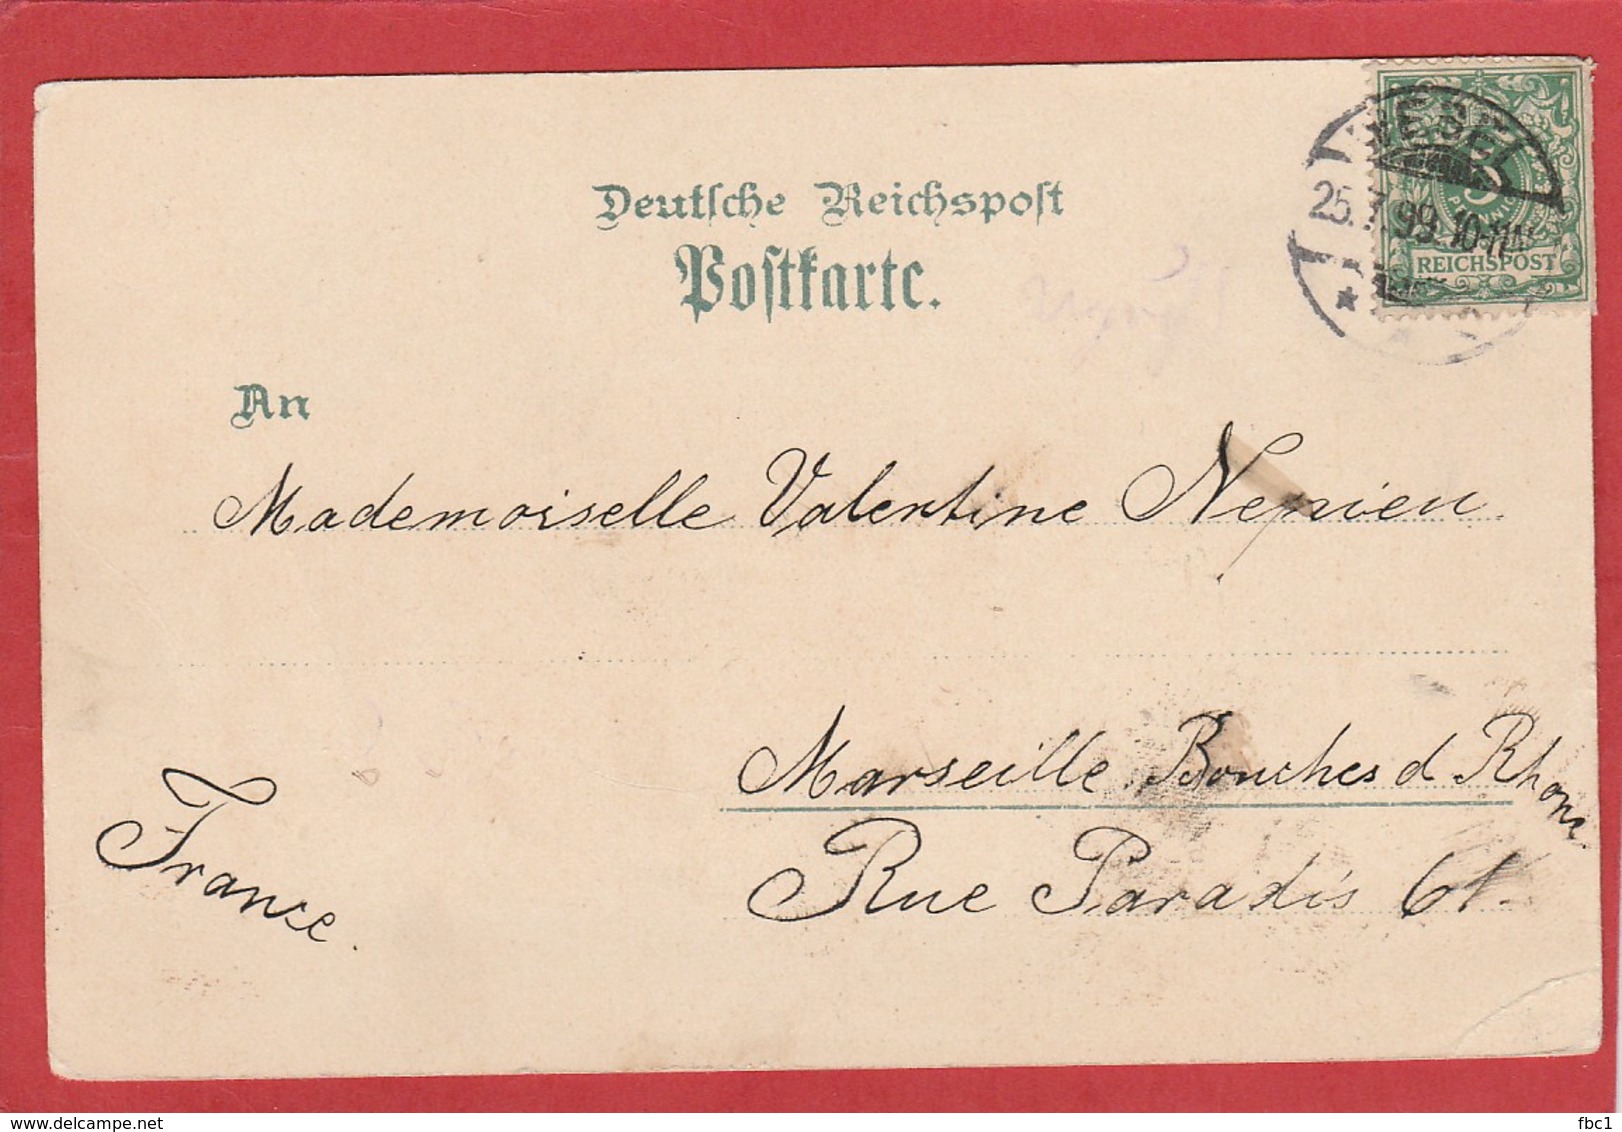 WESEL
25.7.99.10-11N.
5
PFENNIG
REICHSPOST
Deutsche Reichspost
Postkarte.
An
Mademoiselle Valentine Nepveu
Marseille Bouches d Rhone.
Rue Paradis 61.
France.
delcampe.net
fbc1